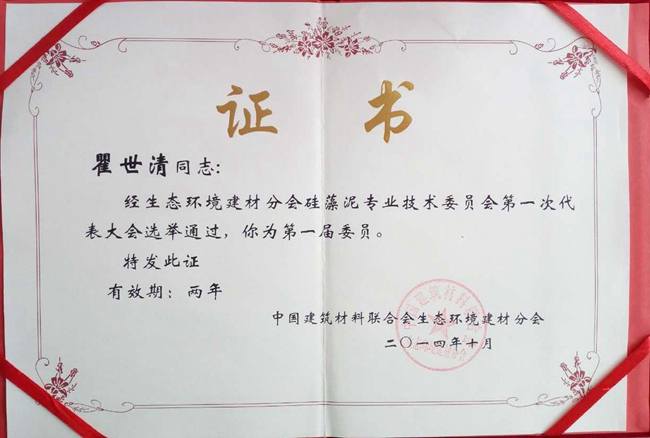 证书
瞿世清同志:
经生态环境建材分会硅藻泥专业技术委员会第一次代
表大会选举通过，你为第一届委员。
特发此证
有效期：两年
中国建筑材料联合会生态环境建材分会
二〇一四年十月